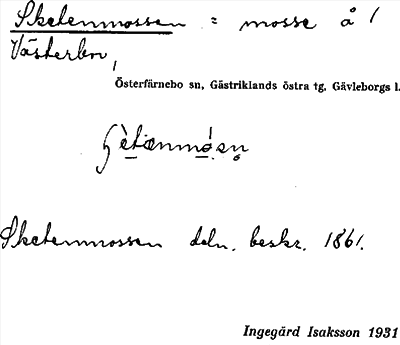 Sketenmossen = mosse å /
Västerbn,
Österfärnebo sn, Gästriklands östra tg, Gävleborgs l.
Sketenmossen deln. beskr. 1861.
Ingegärd Isaksson 1931